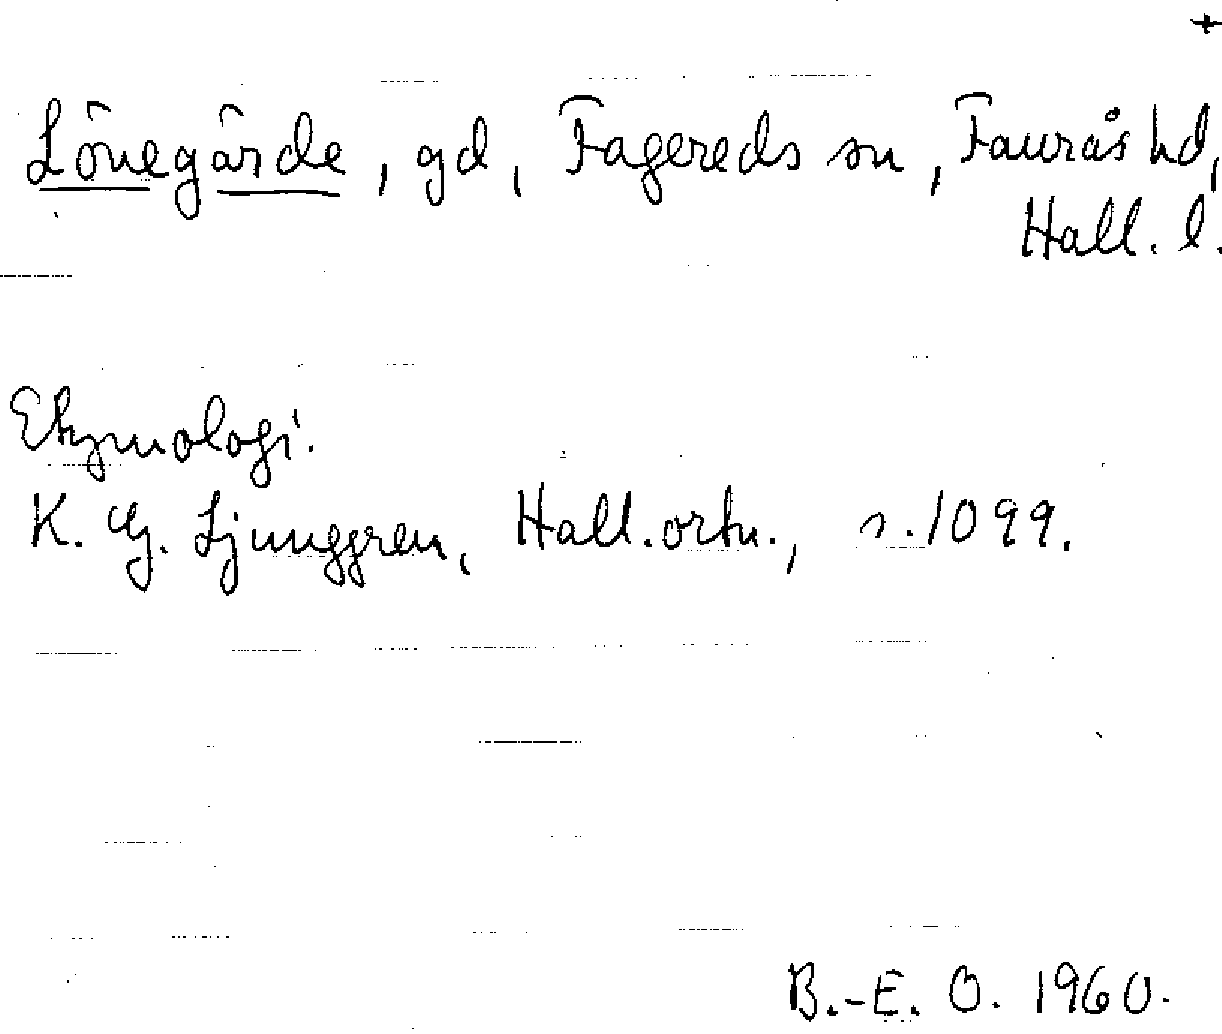 +
Lönegärde, gd, Fagereds sn, Faurås hd,
Hall. l.
Etymologi.
K. G. Ljunggren, Hall. ortn., s. 1099.
B.-E. O. 1960.